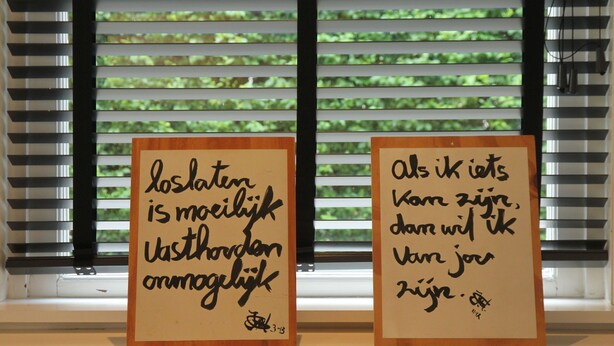 loslaten
is moeilijk
vasthouden
onmogelijk
Als ik iets
kan zijn,
dan wil ik
van jou
zijn.